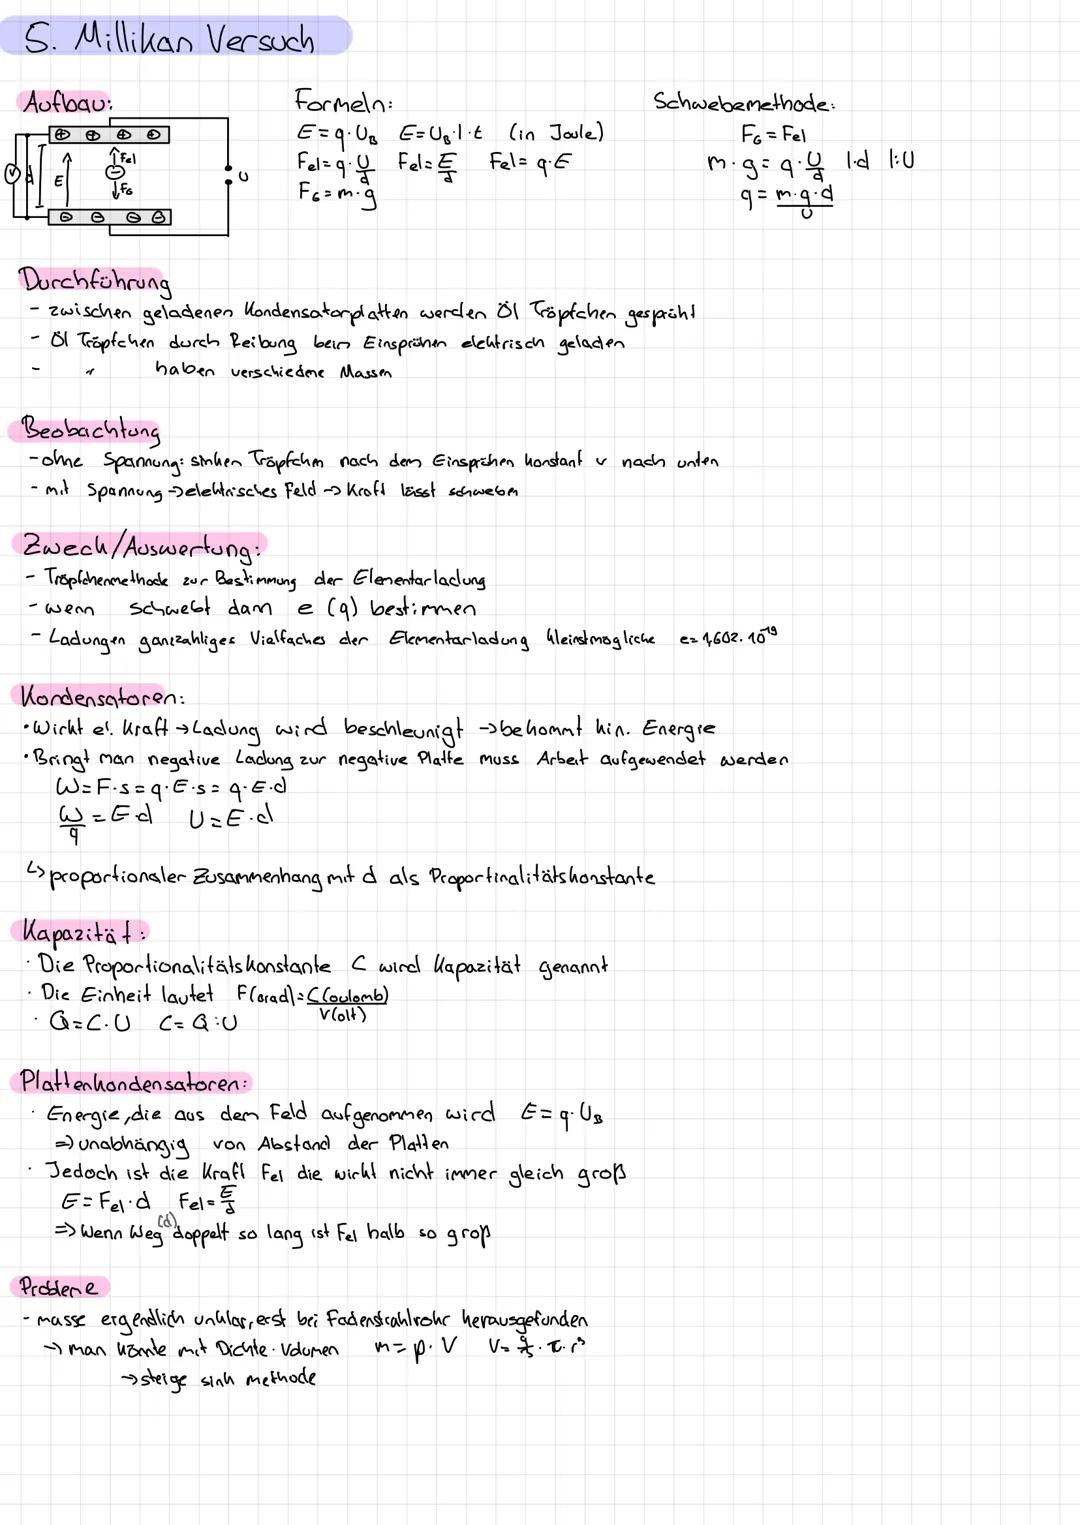 5. Millikan Versuch
Aufbau:
Formeln:
Schwebemethode:
E = q · U_B   E = U_B · I · t   (in Joule)
Fel = q · U/d   Fel = E/d   Fel = q · E
F_G = m · g
F_G = Fel
m · g = q · U/d   | · d   | : U
q = m · g · d / U
V d E Fel F_G U
Durchführung
- zwischen geladenen Kondensatorplatten werden Öl Tröpfchen gesprüht
- Öl Tröpfchen durch Reibung beim Einsprühen elektrisch geladen
- " haben verschiedene Massen
Beobachtung
- ohne Spannung: sinken Tröpfchen nach dem Einsprühen konstant v nach unten
- mit Spannung → elektrisches Feld → Kraft lässt schweben
Zweck/Auswertung:
- Tröpfchenmethode zur Bestimmung der Elementarladung
- wenn schwebt dann e (q) bestimmen
- Ladungen ganzzahliges Vielfaches der Elementarladung kleinstmögliche e = 1,602 · 10^-19
Kondensatoren:
• Wirkt el. Kraft → Ladung wird beschleunigt → bekommt kin. Energie
• Bringt man negative Ladung zur negative Platte muss Arbeit aufgewendet werden
W = F · s = q · E · s = q · E · d
W/q = E · d   U = E · d
↳ proportionaler Zusammenhang mit d als Proportinalitätskonstante
Kapazität:
· Die Proportionalitätskonstante C wird Kapazität genannt
· Die Einheit lautet F(arad) = C(oulomb) / V(olt)
· Q = C · U   C = Q : U
Plattenkondensatoren:
· Energie, die aus dem Feld aufgenommen wird E = q · U_B
⇒ unabhängig von Abstand der Platten
· Jedoch ist die Kraft Fel die wirkt nicht immer gleich groß
E = Fel · d   Fel = E/d
⇒ Wenn Weg (d) doppelt so lang ist Fel halb so groß
Probleme
- masse eigendlich unklar, erst bei Fadenstrahlrohr herausgefunden
→ man könnte mit Dichte · Volumen   m = p · V   V = · π · r³
→ steige sink methode